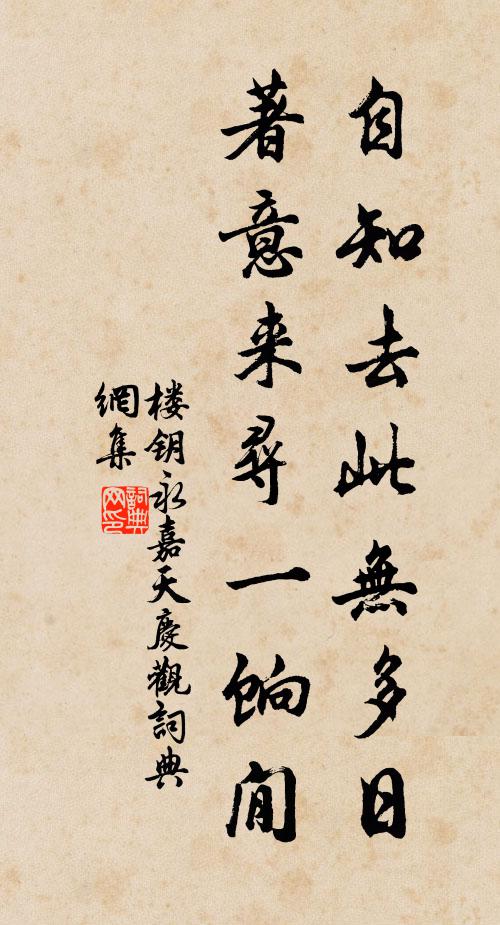 自知去此無多日
著意来尋一餉閒
楼钥永嘉天慶觀詞典
網集
詞典
网印